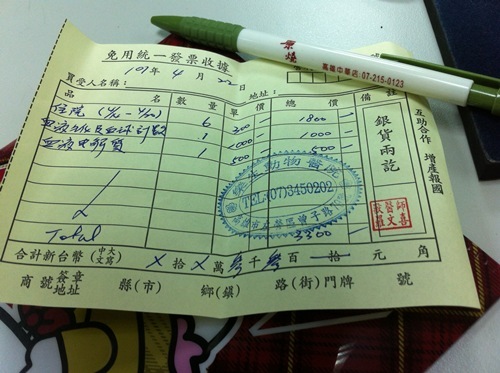 高雄中華店 07-215-0123
免用統一發票收據
101年 4月 22日
買受人名稱： 地址：
品名 數量 單價 總價 備註
住院 6 300 1800
1 1000 1000
血液電解質 1 500 500
Total 3300
銀貨兩訖
互助合作 增產報國
動物醫院
TEL:(07)3450202
合計新台幣(中文大寫) 拾 萬 參千 參百 拾 元 角
商號簽章地址 縣(市) 鄉(鎮) 路(街)門牌 號